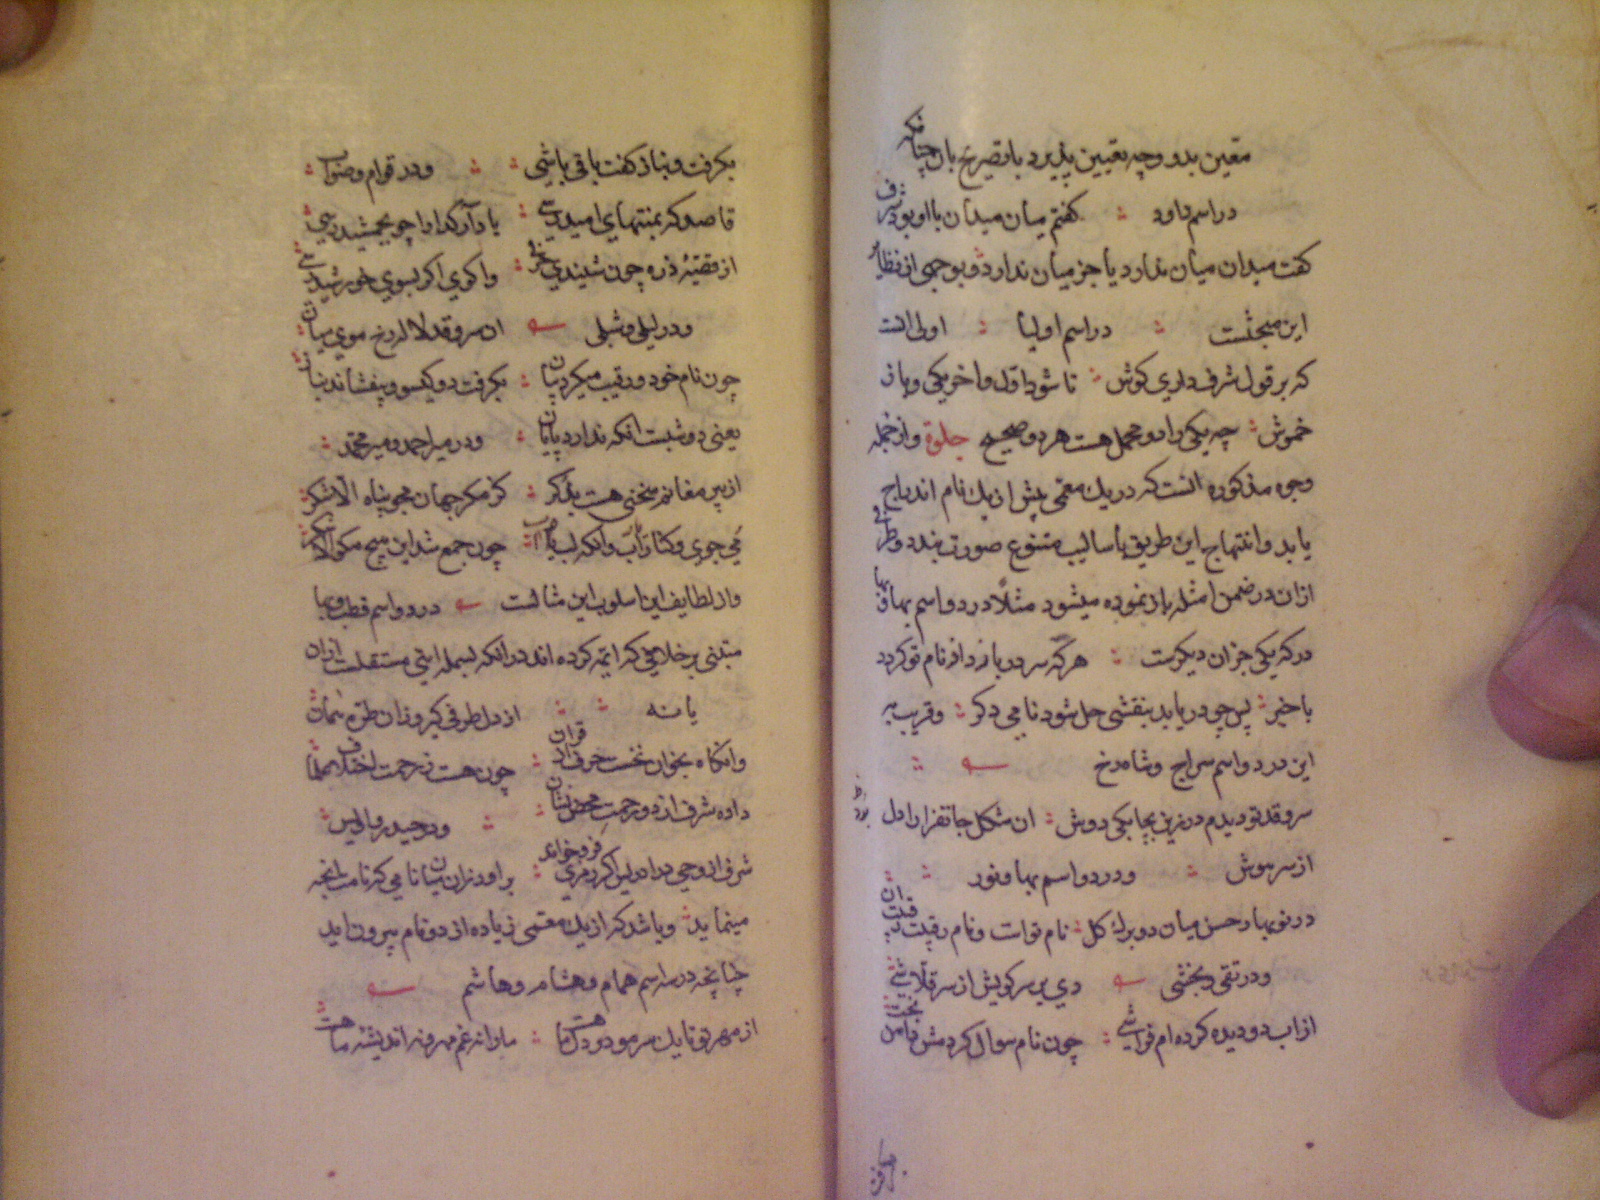 معین بدو وجه تعیین پذیرد با تصریح بان چنانکه
در اسم داود گفتم میان میدان با او بود شرف
گفت میدان میان ندارد یا جز میان ندارد و بوجهی از نظایر
این مبحثست در اسم اولیا اولی انست
که بر قول شرف داری کوش تا شود اول و اخر یکی و باز
خموش چه یکی را دو محمل هست هر دو صحیح جلوة و از جمله
وجوه مذکوره انست که در یک معمی پیش از یک نام اندراج
یابد و انتهاج این طریق باسالیب متنوع صورت بندد و طرفی
ازان در ضمن امثله باز نموده میشود مثلا در دو اسم بها و
در که یکی جزان دیکرست هر که سر در بازد از نام تو کردد
با خبر پس چو دریابد بنقشی حل شود نامی دکر و قریب به
این در دو اسم سراج و شاهرخ
سرو قد تو دیدم در زین بچابکی دوش ان شکل جانفزا را دل
از سر هوش و در دو اسم بها و نور
در نوبهار حسن میان دو برک کل نام تو است و نام رقیبت
و در تقی و بخشی دی بر سر کویش از سر قلاشی
از اب دو دیده کرده ام فراشی چون نام سوال کردمش
بکرفت و بناز کفت باقی باشی و در قوام و صواب
قاصد که بمنتهای امید رسی یاد آر کدا را چو بجمشید رسی
از قصه ذره چون شنیدی واکوی اکر بسوی خورشید رسی
و در لیلی و شبلی ان سرو قد لاله رخ موی میان
چون نام خود و رقیب میکرد بیان بکرفت دو کیسو و بیفشاند
یعنی دو شبست انکه ندارد پایان و در میر احمد و میر محمد
از پیر مغانم سخنی هست بذکر کز مکر جهان مجو پناه الا شکر
می جوی و کنار آب وانکه لب چون جمع شد این هیچ مکو الا
و از لطایف این اسلوب این مثالست در دو اسم قطب و بها
مبتنی بر خلافی که ائمه کرده اند در انکه بسمله ایتی مستقلست از قران
یا نه از دل طرفی کیر و زان طره
وانکاه بخوان نخست حرف از قران چون هست ز رحمت
داده شرف از دو رحمت محض نشان و در حیدر و اویس
شرف از وحی در فرو خواند براورد زان میان نامی که نامت انچه
مینماید و باشد که از یک معمی زیاده از دو نام بیرون اید
چنانچه در سه اسم همام و هشام و هاشم
از مهر تو تا یک سر مو در دل ما هست ما را نه غم مهر و نه اندیشه ماهست